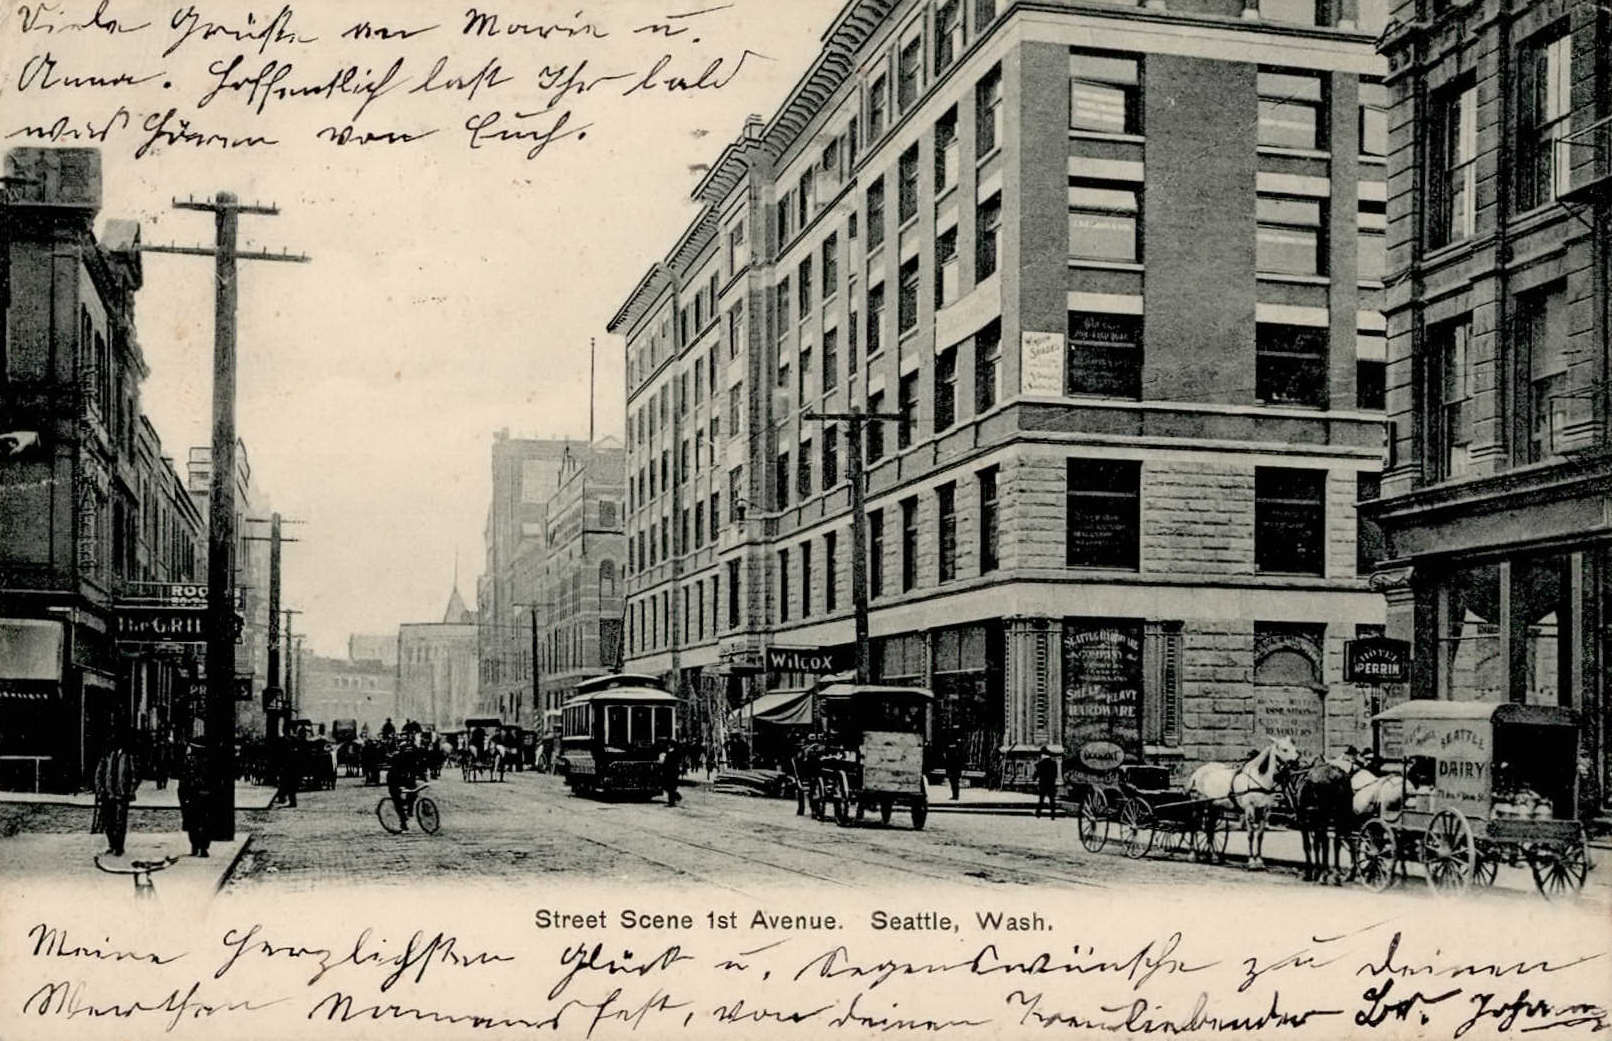 Viele Grüße an Marie u.
Anna. Hoffentlich laßt Ihr bald
was hören von Euch.
ROOMS
The GRILL
WINDOW
SHADES
WILCOX
SEATTLE HARDWARE
COMPANY
SHELF HEAVY
HARDWARE
HOTEL
PERRIN
SEATTLE
DAIRY
Street Scene 1st Avenue. Seattle, Wash.
Meine herzlichsten Glück u. Segenswünsche zu deinen
Werthen Namensfest, von deinen Treuliebender Br. Johann